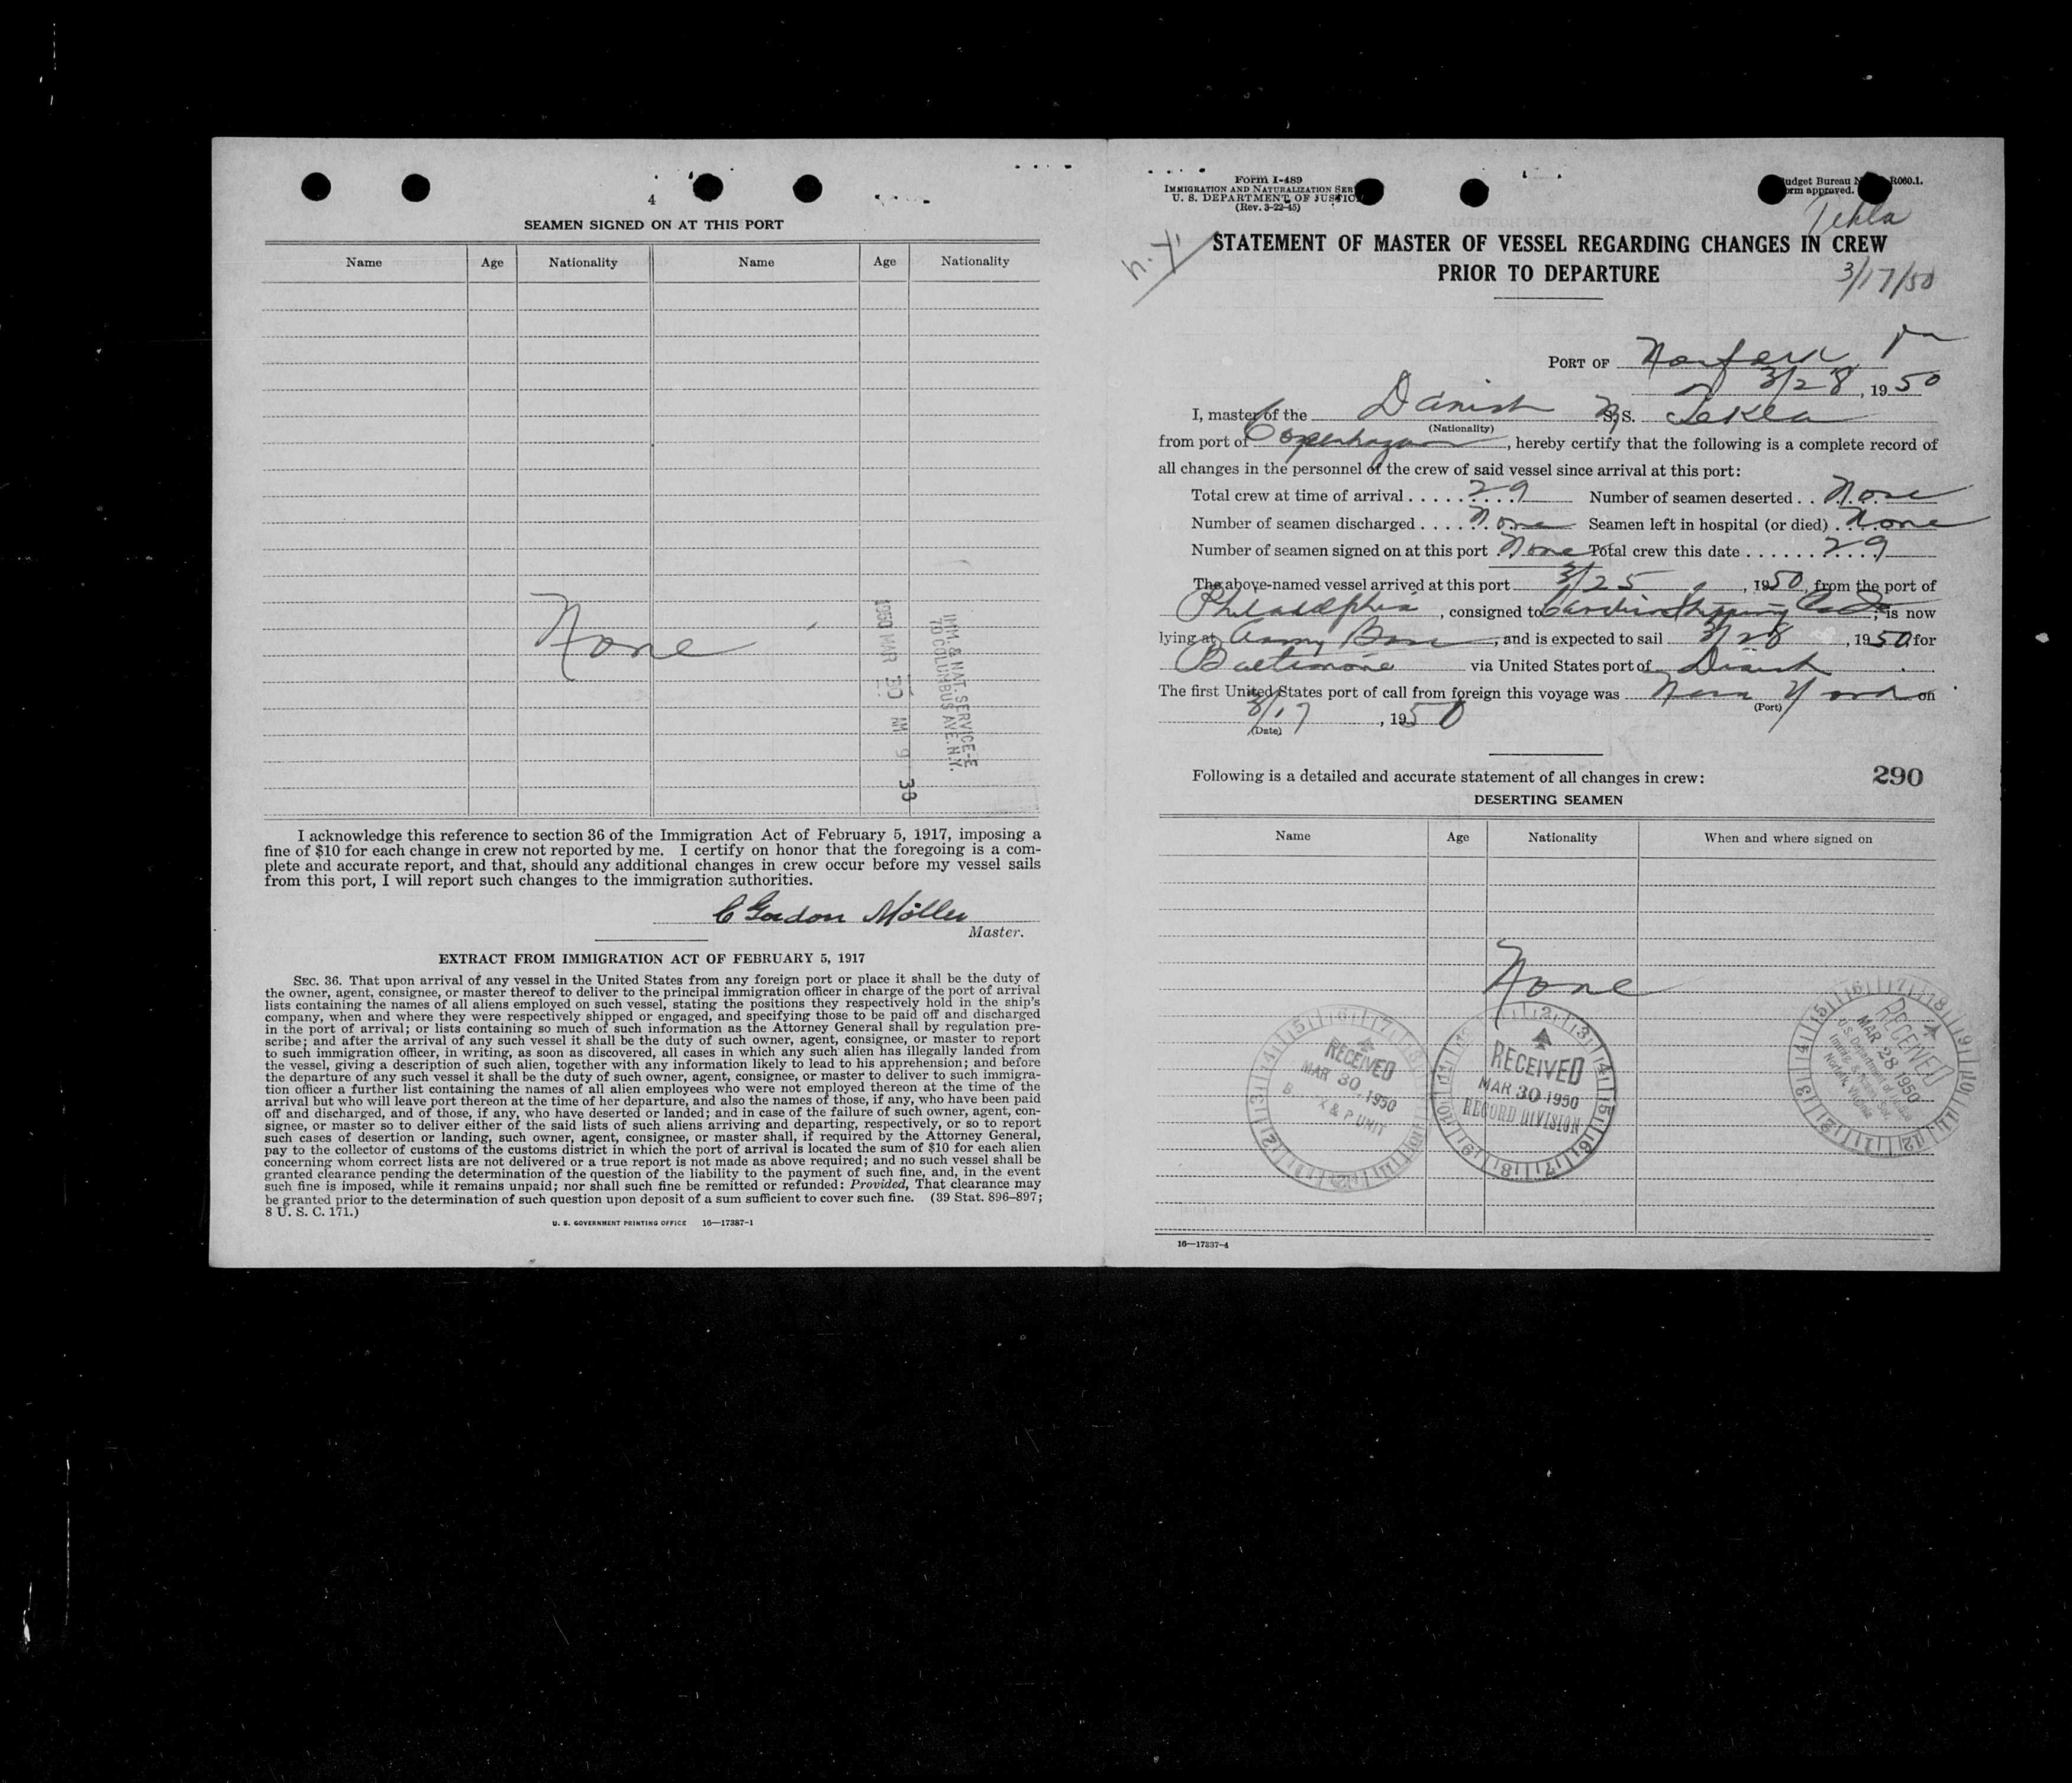 4
SEAMEN SIGNED ON AT THIS PORT
Name Age Nationality Name Age Nationality
None
1950 MAR 30 AM 9 38
IMM. & NAT. SERVICE-E
70 COLUMBUS AVE. N.Y.
I acknowledge this reference to section 36 of the Immigration Act of February 5, 1917, imposing a
fine of $10 for each change in crew not reported by me. I certify on honor that the foregoing is a com-
plete and accurate report, and that, should any additional changes in crew occur before my vessel sails
from this port, I will report such changes to the immigration authorities.
C Gordon Möller
Master.
EXTRACT FROM IMMIGRATION ACT OF FEBRUARY 5, 1917
SEC. 36. That upon arrival of any vessel in the United States from any foreign port or place it shall be the duty of
the owner, agent, consignee, or master thereof to deliver to the principal immigration officer in charge of the port of arrival
lists containing the names of all aliens employed on such vessel, stating the positions they respectively hold in the ship's
company, when and where they were respectively shipped or engaged, and specifying those to be paid off and discharged
in the port of arrival; or lists containing so much of such information as the Attorney General shall by regulation pre-
scribe; and after the arrival of any such vessel it shall be the duty of such owner, agent, consignee, or master to report
to such immigration officer, in writing, as soon as discovered, all cases in which any such alien has illegally landed from
the vessel, giving a description of such alien, together with any information likely to lead to his apprehension; and before
the departure of any such vessel it shall be the duty of such owner, agent, consignee, or master to deliver to such immigra-
tion officer a further list containing the names of all alien employees who were not employed thereon at the time of the
arrival but who will leave port thereon at the time of her departure, and also the names of those, if any, who have been paid
off and discharged, and of those, if any, who have deserted or landed; and in case of the failure of such owner, agent, con-
signee, or master so to deliver either of the said lists of such aliens arriving and departing, respectively, or so to report
such cases of desertion or landing, such owner, agent, consignee, or master shall, if required by the Attorney General,
pay to the collector of customs of the customs district in which the port of arrival is located the sum of $10 for each alien
concerning whom correct lists are not delivered or a true report is not made as above required; and no such vessel shall be
granted clearance pending the determination of the question of the liability to the payment of such fine, and, in the event
such fine is imposed, while it remains unpaid; nor shall such fine be remitted or refunded: Provided, That clearance may
be granted prior to the determination of such question upon deposit of a sum sufficient to cover such fine. (39 Stat. 896–897;
8 U. S. C. 171.)
U. S. GOVERNMENT PRINTING OFFICE 16—17387-1
Form I-489
IMMIGRATION AND NATURALIZATION SER
U. S. DEPARTMENT OF JUSTIC
(Rev. 3-22-45)
udget Bureau N R060.1.
orm approved.
Tekla
N.Y.
STATEMENT OF MASTER OF VESSEL REGARDING CHANGES IN CREW
PRIOR TO DEPARTURE
3/17/50
PORT OF Norfolk, Va
3/28, 1950
I, master of the Danish S.S. Tekla
(Nationality)
from port of Copenhagen, hereby certify that the following is a complete record of
all changes in the personnel of the crew of said vessel since arrival at this port:
Total crew at time of arrival ..... 29 Number of seamen deserted .. None
Number of seamen discharged .... None Seamen left in hospital (or died) . None
Number of seamen signed on at this port . None Total crew this date ...... 29
The above-named vessel arrived at this port 3/25, 1950, from the port of
Philadelphia, consigned to Shipping, is now
lying at Army Base, and is expected to sail 3/28, 1950, for
Baltimore via United States port of Direct.
The first United States port of call from foreign this voyage was New York on
(Port)
3/17, 1950
(Date)
Following is a detailed and accurate statement of all changes in crew: 290
DESERTING SEAMEN
Name Age Nationality When and where signed on
None
RECEIVED
MAR 30 1950
X & P UNIT
RECEIVED
MAR 30 1950
RECORD DIVISION
RECEIVED
MAR 28 1950
U.S. Department of Justice
Immig. & Natz. Ser.
Norfolk, Virginia
16—17387-4